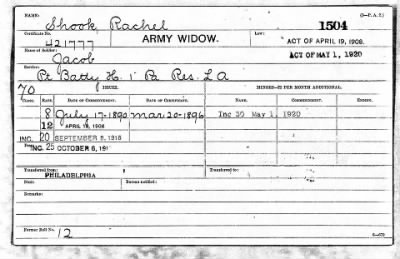 NAME: (3—P. A. Z.)
Shook, Rachel 1504
Certificate No. ARMY WIDOW. Law: ACT OF APRIL 19, 1908.
421777 ACT OF MAY 1, 1920
Name of Soldier:
Jacob
Service:
Pt Batty H. 1" Pa Res. L A
70 ISSUES. MINORS—$2 PER MONTH ADDITIONAL.
CLASS. RATE. DATE OF COMMENCEMENT. DATE OF CERTIFICATE. NAME. COMMENCEMENT.
8 July 17-1890 Mar. 20-1896 Inc 30 May 1, 1920
12 APRIL 19, 1908
INC. 20 SEPTEMBER 8, 1916
INC. 25 OCTOBER 6, 191
Transferred from: Transferred to:
PHILADELPHIA
Died: Bureau notified:
Remarks:
Former Roll No. 12